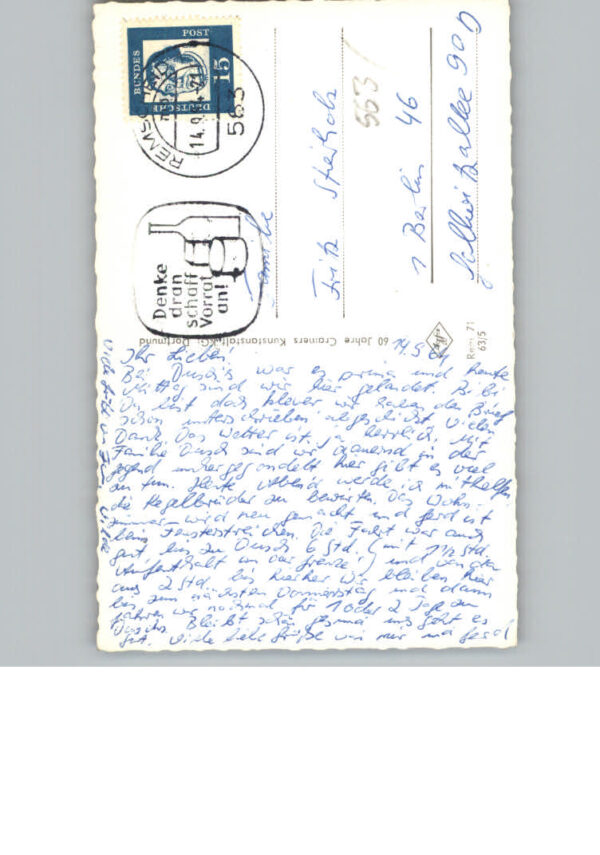 DEUTSCHE
BUNDES
POST
15
REMSCHEID
14.9.
563
Denke
dran
schaff
Vorrat
an!
Familie
Fritz
1 Berlin 46
90 D
563
60 Jahre Cramers Kunstanstalt KG, Dortmund
Rem. 71
63/5
14.9.64
Ihr Lieben!
Bei war es prima und heute
Mittag sind wir hier gelandet.
den Brief
schon unterschrieben abgeschickt. Vielen
Dank. Das Wetter ist ja herrlich. Mit
Familie sind wir in der
Gegend umhergegondelt hier gibt es viel
zu tun. Heute Abend werde ich mithelfen
die Kegelbrüder zu bewirten. Das Wohn-
zimmer wird neu gemacht und Gerd ist
beim Fensterstreichen. Die Fahrt war auch
gut bis zu 6 Std. (mit 1½ Std.
Aufenthalt an der Grenze) und von da
aus 2 Std. bis hierher. Wir bleiben hier
bis zum nächsten Donnerstag und dann
fahren wir nochmal für 1 oder 2 Tage zu
Bleibt schön gesund uns geht es
gut. Viele liebe Grüße von mir und Gerd